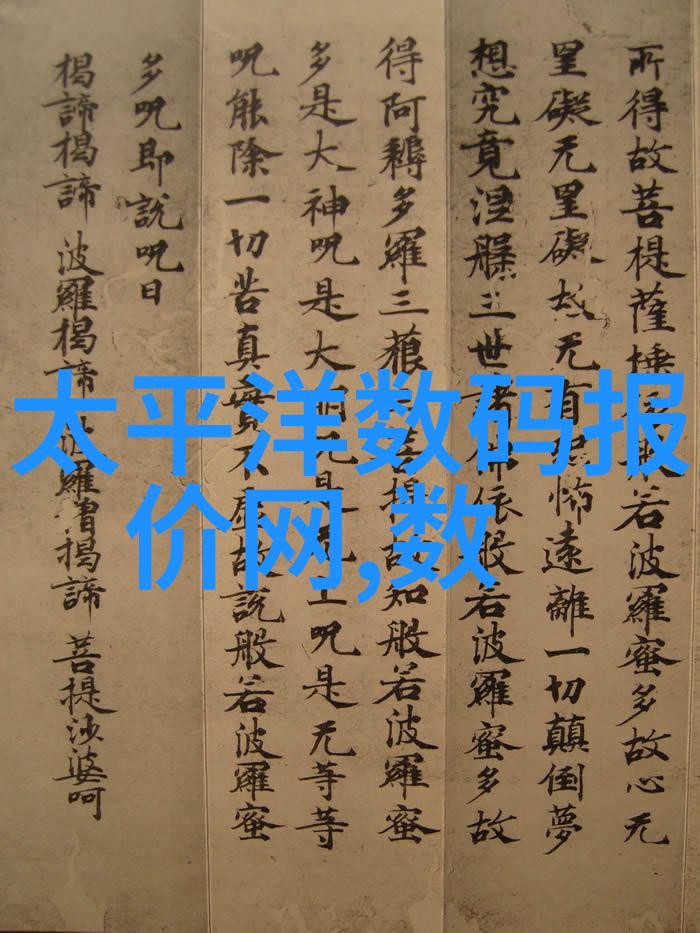 所得故菩提薩埵般若波羅蜜多故心无
罣礙无罣礙故无有恐怖遠離一切顛倒夢
想究竟涅槃三世諸佛依般若波羅蜜多故
得阿耨多羅三藐菩提故知般若波羅蜜
多是大神呪是大明呪是无上呪是无等等
呪能除一切苦真實不虛故說般若波羅蜜
多呪即說呪曰
揭諦揭諦 波羅揭諦 波羅僧揭諦 菩提沙婆呵
太平洋数码报
价网,数